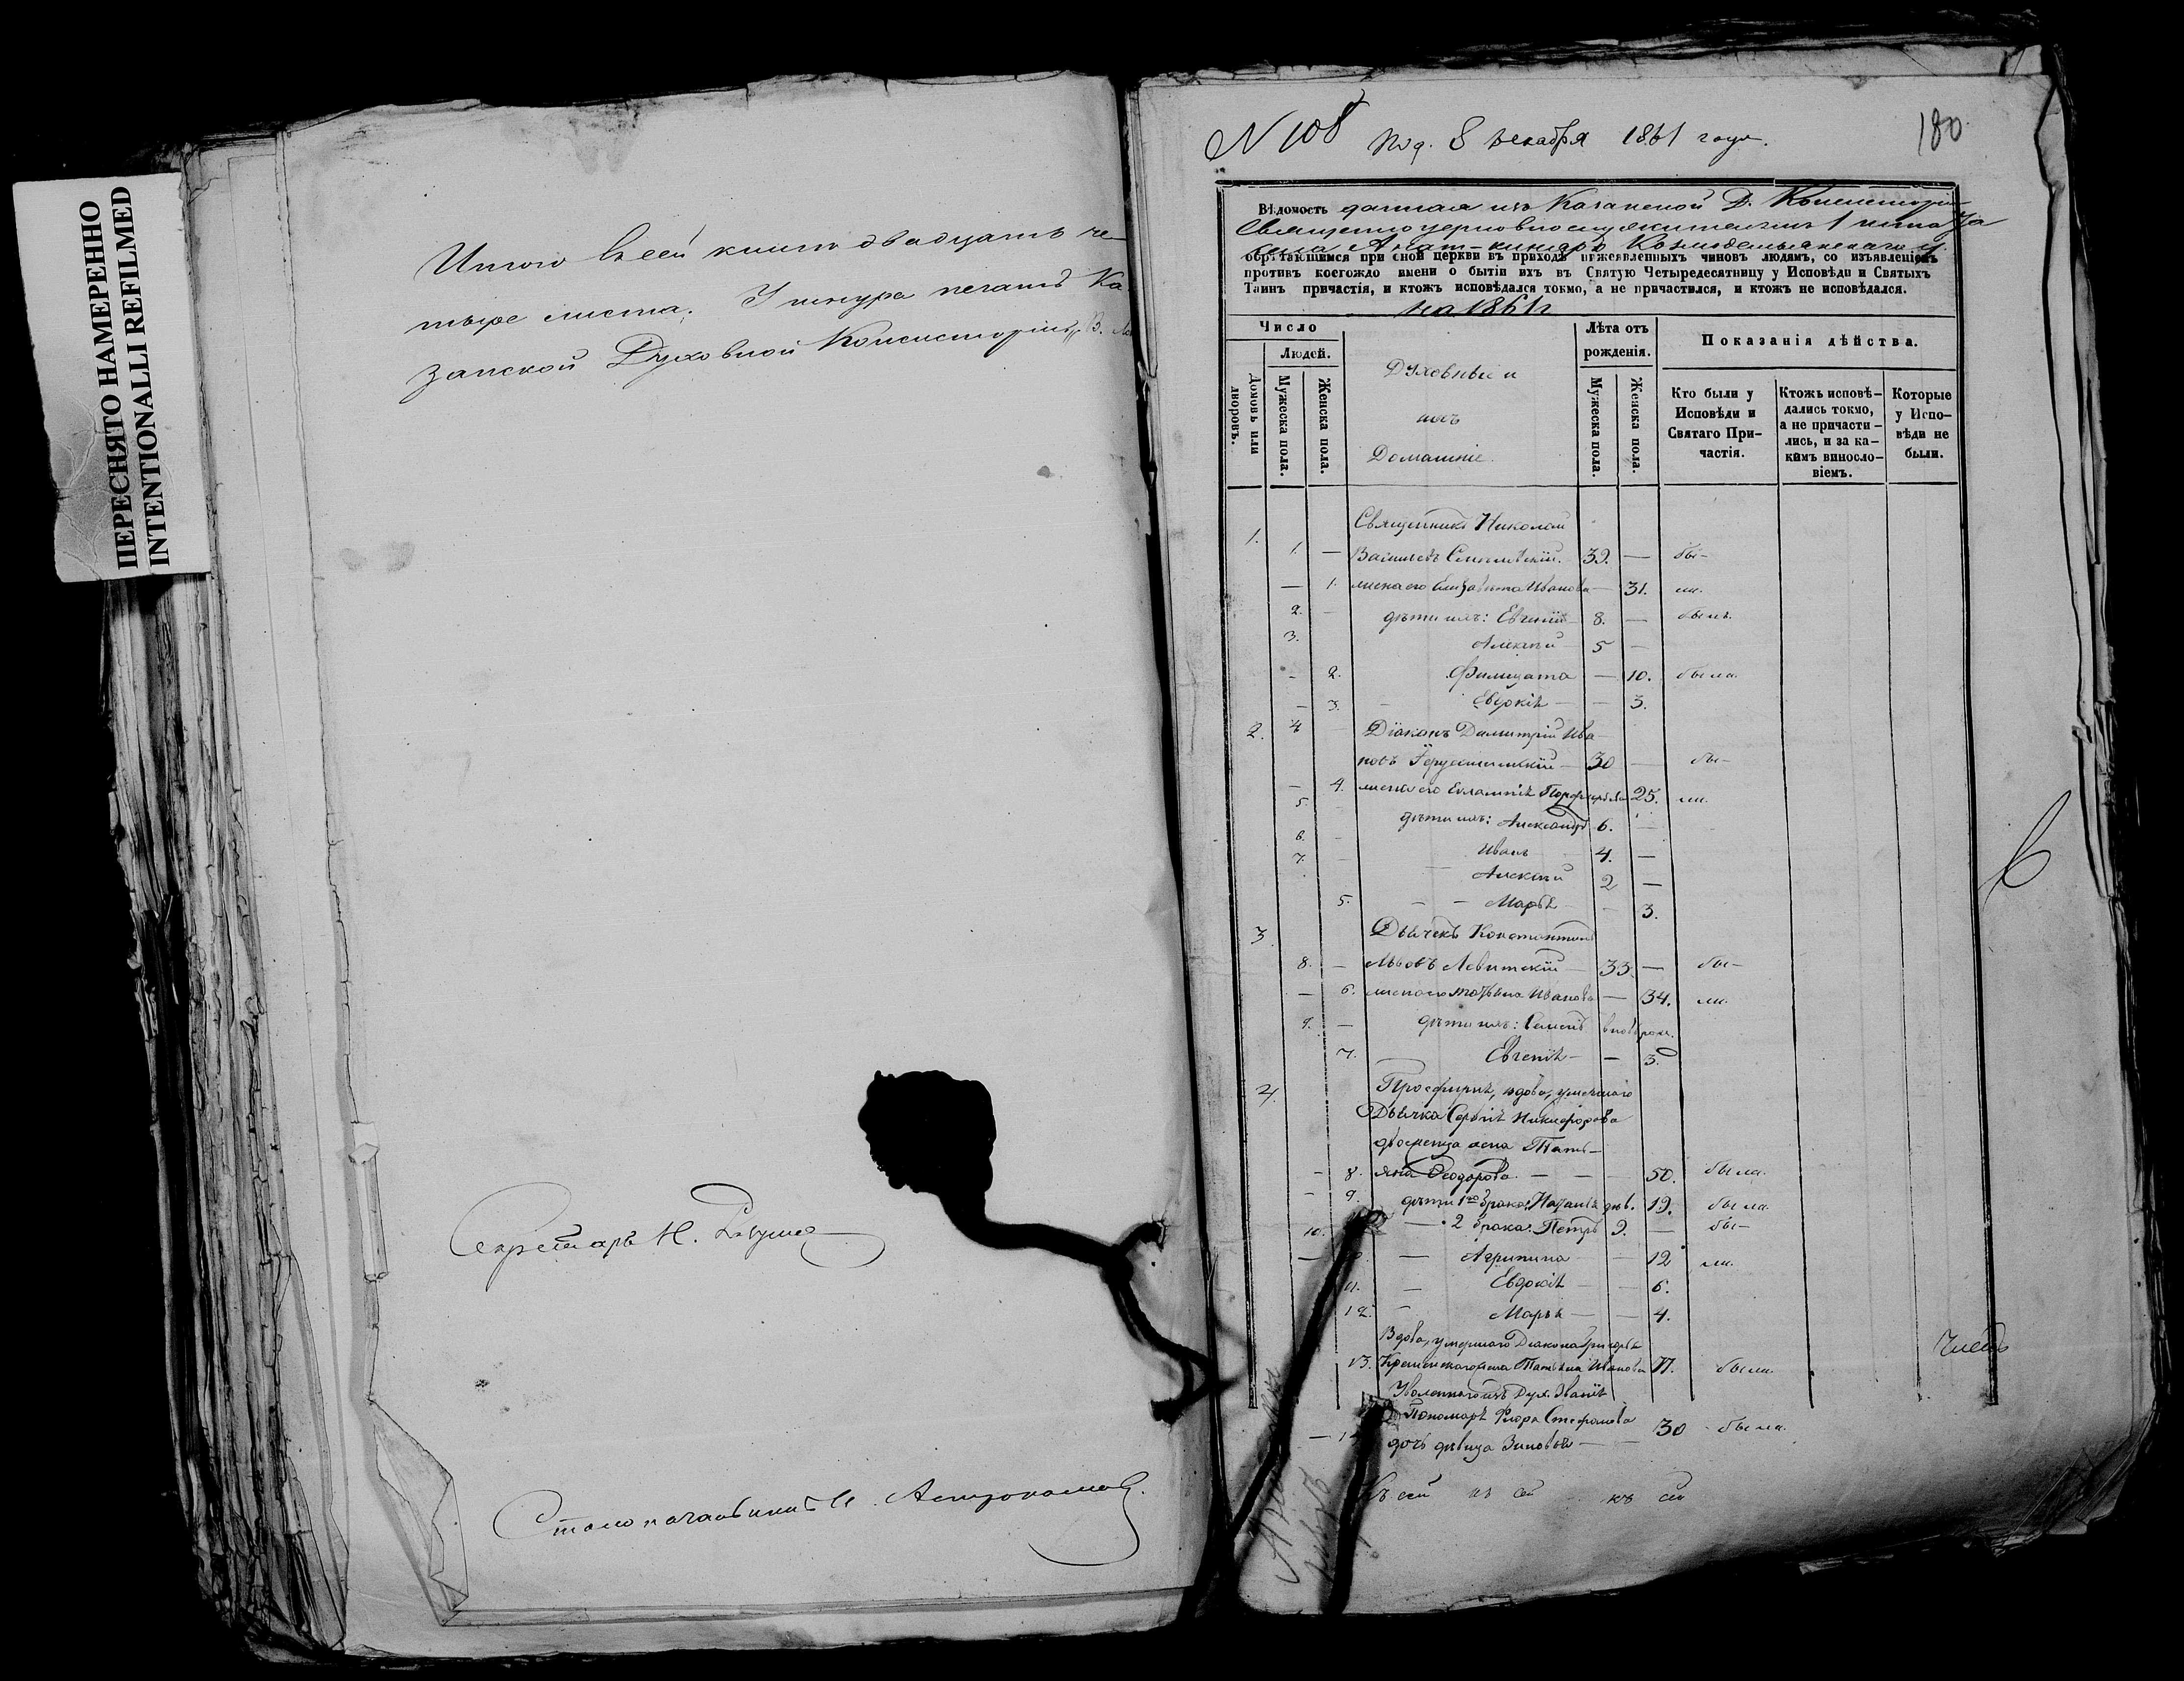 ПЕРЕСНЯТО НАМЕРЕННО
INTENTIONALLI REFILMED
Итого в сей книге двадцать че-
тыре листа. У шнура печать Ка
занской Духовной Консисторіи
Секретарь Н.
Столоначальникъ И. Астрономовъ.
N 108 под. 8 декабря 1861 года.
180
Вѣдомость данная изъ Казанской Д. Консисторіи
Священно церковнослужителямъ
села Козмодемьянскаго у.
обрѣтающимся при оной церкви въ приходѣ нижеявленныхъ чиновъ людямъ, со изъявленіемъ
противъ коегождо имени о бытіи ихъ въ Святую Четыредесятницу у Исповѣди и Святыхъ
Таинъ причастія, и ктожъ исповѣдался токмо, а не причастился, и ктожъ не исповѣдался.
на 1861 г
Число
Людей.
Домовъ или дворовъ.
Мужеска пола.
Женска пола.
Духовные и
ихъ
Домашніе.
Лѣта отъ
рожденія.
Мужеска пола.
Женска пола.
Показанія дѣйства.
Кто были у
Исповѣди и
Святаго При-
частія.
Ктожъ исповѣ-
дались токмо,
а не причасти-
лись, и за ка-
кимъ виносло-
віемъ.
Которые
у Испо-
вѣди не
были.
1. Священникъ Николай
1. — Васильевъ 32. — бы-
— 1. жена его Елизавета Иванова — 31. ли.
2. — дѣти ихъ: Евгеній 8. — былъ.
3. Алексѣй 5 —
- 2. Филицата — 10. была.
— 3. Евдокія — 3.
2. 4 Діаконъ Димитрій Ива-
новъ — 30 — бы-
— 4. жена его Евлампія Порфирьева 25. ли.
5. дѣти ихъ: Александръ 6. —
6. — Иванъ 4. —
7. — Алексѣй 2 —
5. Марья — 3.
3. Дьячекъ Константинъ
8. — Львовъ Левитскій — 33. — бы-
— 6. жена его Татьяна Иванова — 34. ли.
9. — дѣти ихъ: Семенъ
7. Евгенія — — 3.
4. Просфирня, вдова, умершаго
Дьячка Сергія Никифорова
жена Тать-
— 8. яна Ѳеодорова — 50. была.
— 9. дѣти 1го брака: дѣв. 19. была.
10. — 2 брака: Петръ 9. — бы-
— Агрипина — 12 ли.
11. — Евдокія — 6.
12. Марья — — 4.
Вдова, умершаго Діакона Григорья
13. жена Татьяна Иванова 77. была.
Уволеннаго изъ Дух. Званія
Пономаря Флора Стефанова
— дочь дѣвица Зиновья — 30 - была.
къ сей къ сей